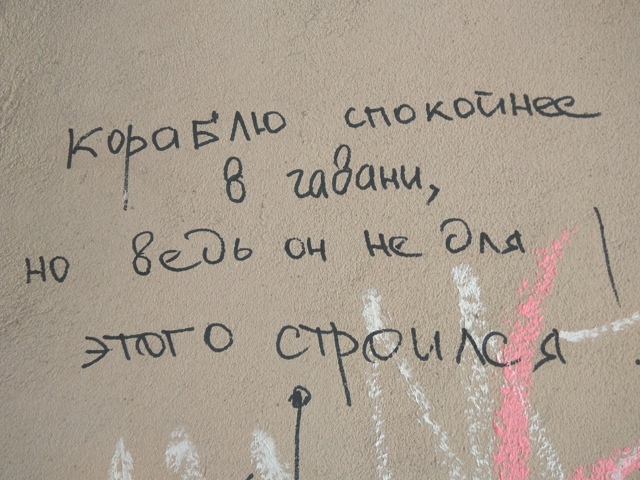 Кораблю спокойнее
в гавани,
но ведь он не для
этого строился